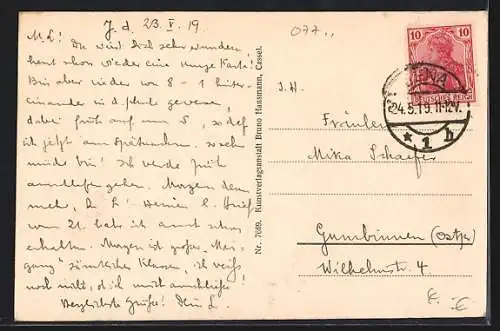 J. d. 23. V. 19
077,,
M. L.! Du wirst Dich sehr wundern,
heut schon wieder eine Karte!
Bin aber wieder von 8 - 1 hinter-
einander in d. Schule gewesen,
dabei früh auf um 5, so daß
ich jetzt am
müde bin! Ich werde früh
gehen. Morgen dann
mehr, D. L.! Deinen l. Brief
vom 21. habe ich auch schon
erhalten. Morgen ist großer "Mai-
gang" sämtlicher Klassen, ich weiß
noch nicht, ob ich mich anschließe!
Herzlichste Grüße! Dein L.
Nr. 7689. Kunstverlagsanstalt Bruno Hansmann, Cassel.
10 10
DEUTSCHES REICH
JENA
24.5.19. 11-12V.
* 1 b
I. H.
Fräulein
Mika Schaefer
Gumbinnen (Ostpr.
Wilhelmstr. 4